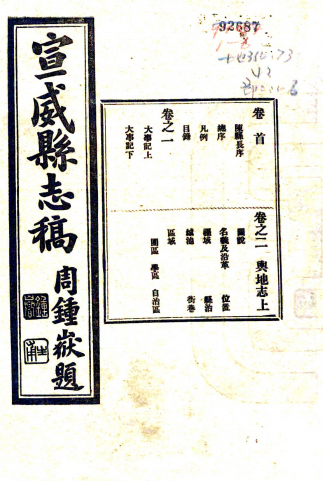 92687
宣威縣志稿
周鍾嶽題
卷首
陳縣長序
總序
凡例
目錄
卷之一
大事記上
大事記下
卷之二 輿地志上
圖說
名義及沿革 位置
疆域 縣治
城池 街巷
區域
團區 學區 自治區